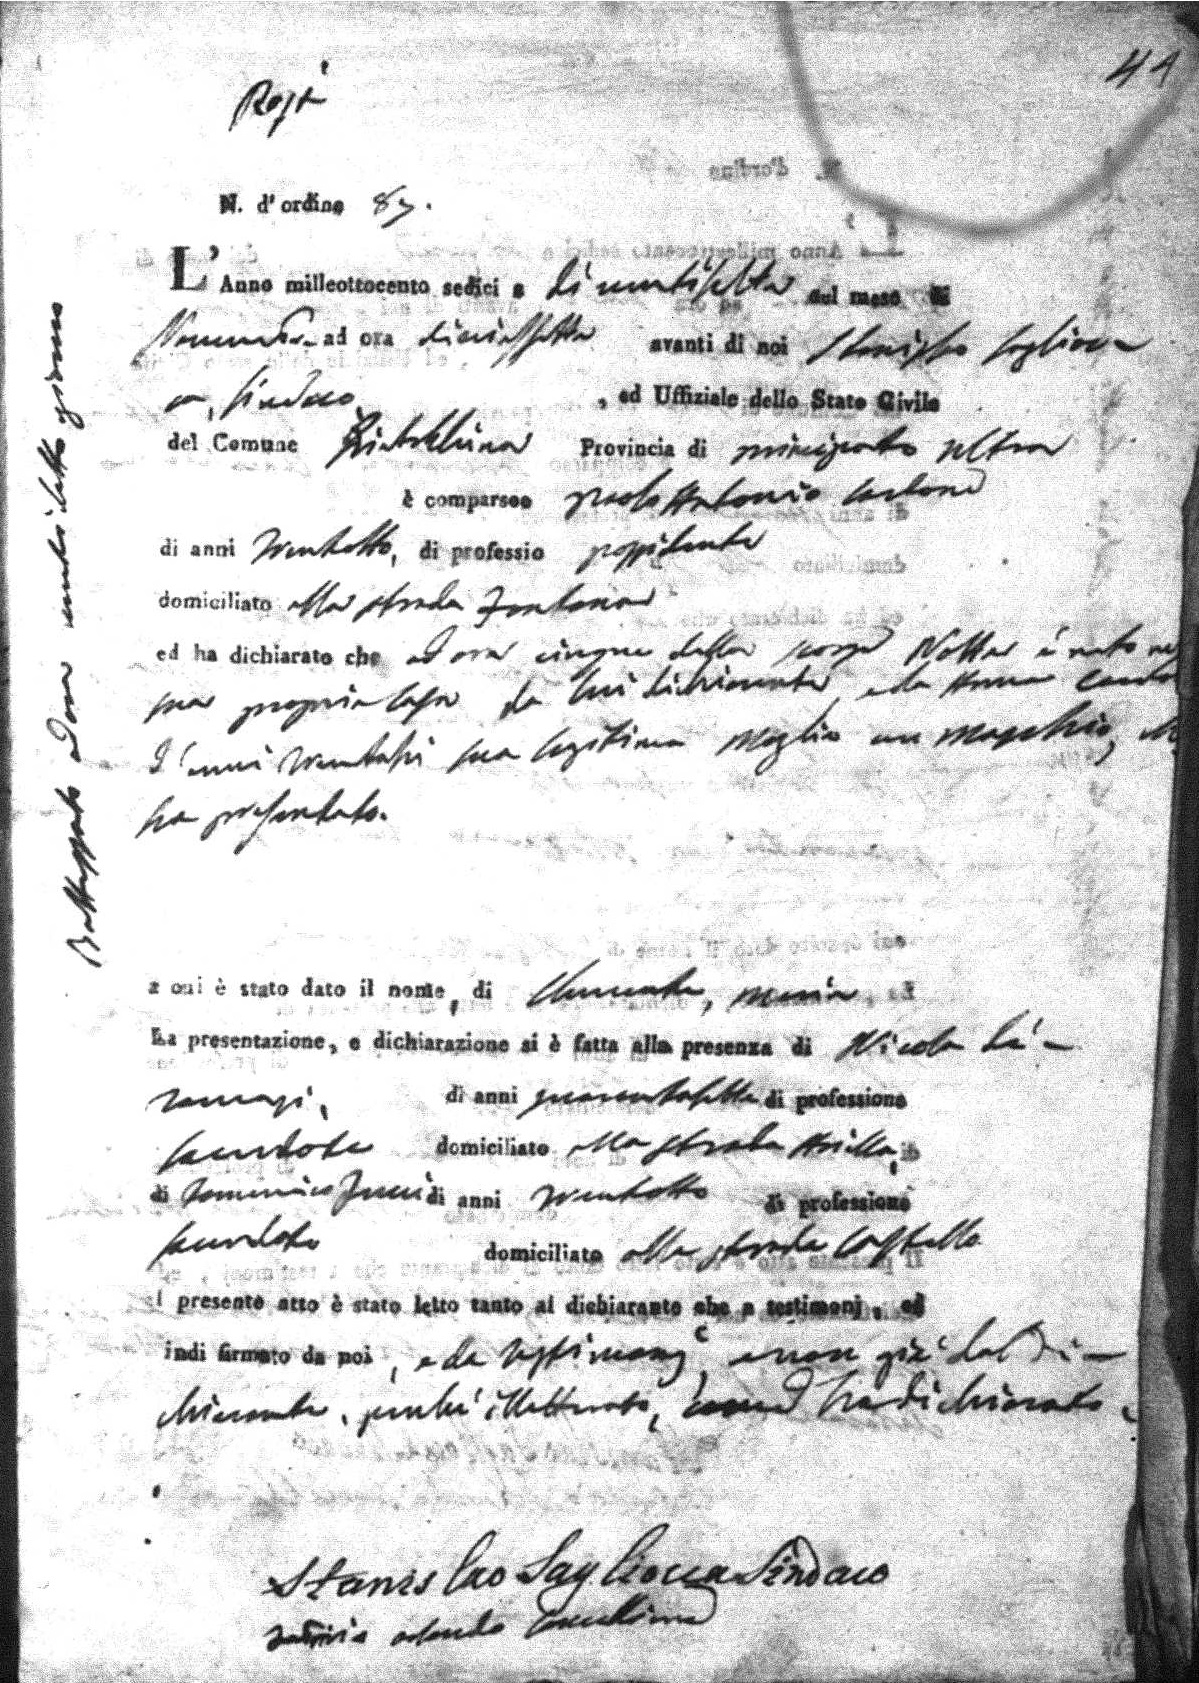 41
N. d'ordine 87.
L'Anno milleottocento sedici a di ventisette del mese di
Novembre ad ora diciassette avanti di noi Stanislao Saglioc
ca, Sindaco, ed Uffiziale dello Stato Civile
del Comune Provincia di principato ultra
è comparso paolo Antonio
di anni trentotto, di professio
domiciliato alla strada Fontana
ed ha dichiarato che ad ora cinque della scorsa Notte è nato in
sua propria casa da lui dichiarante, e da Anna
d'anni trentasei sua legitima Moglie un Maschio, che
ha presentato.
a cui è stato dato il nome, di Clemente, maria
La presentazione, e dichiarazione si è fatta alla presenza di Nicola
di anni quarantasette di professione
sacerdote domiciliato alla strada
di Domenico di anni trentotto di professione
sacerdote domiciliato alla strada Castello
il presente atto è stato letto tanto al dichiarante che a testimonj, ed
indi firmato da noi, e da testimonj, e non già dal di-
chiarante, perché illetterato, come ha dichiarato.
Stanislao Sagliocca Sindaco
Battezzato ad ora ventidue detto giorno